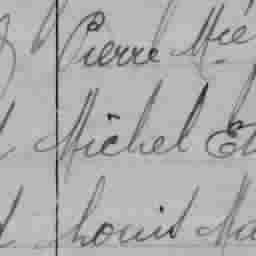 Pierre Mie
Michel Et
Louis Ma